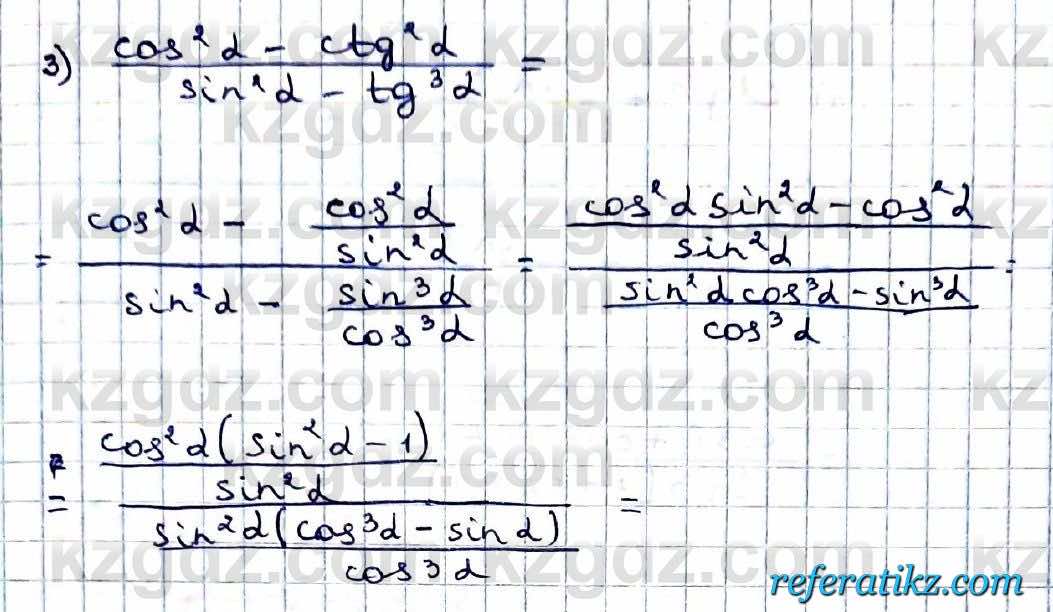 3) (cos²α − ctg²α)/(sin²α − tg³α) =
= (cos²α − cos²α/sin²α)/(sin²α − sin³α/cos³α) = ((cos²α sin²α − cos²α)/sin²α)/((sin²α cos³α − sin³α)/cos³α) =
= (cos²α(sin²α − 1)/sin²α)/(sin²α(cos³α − sin α)/cos³α) =
kzgdz.com
referatikz.com